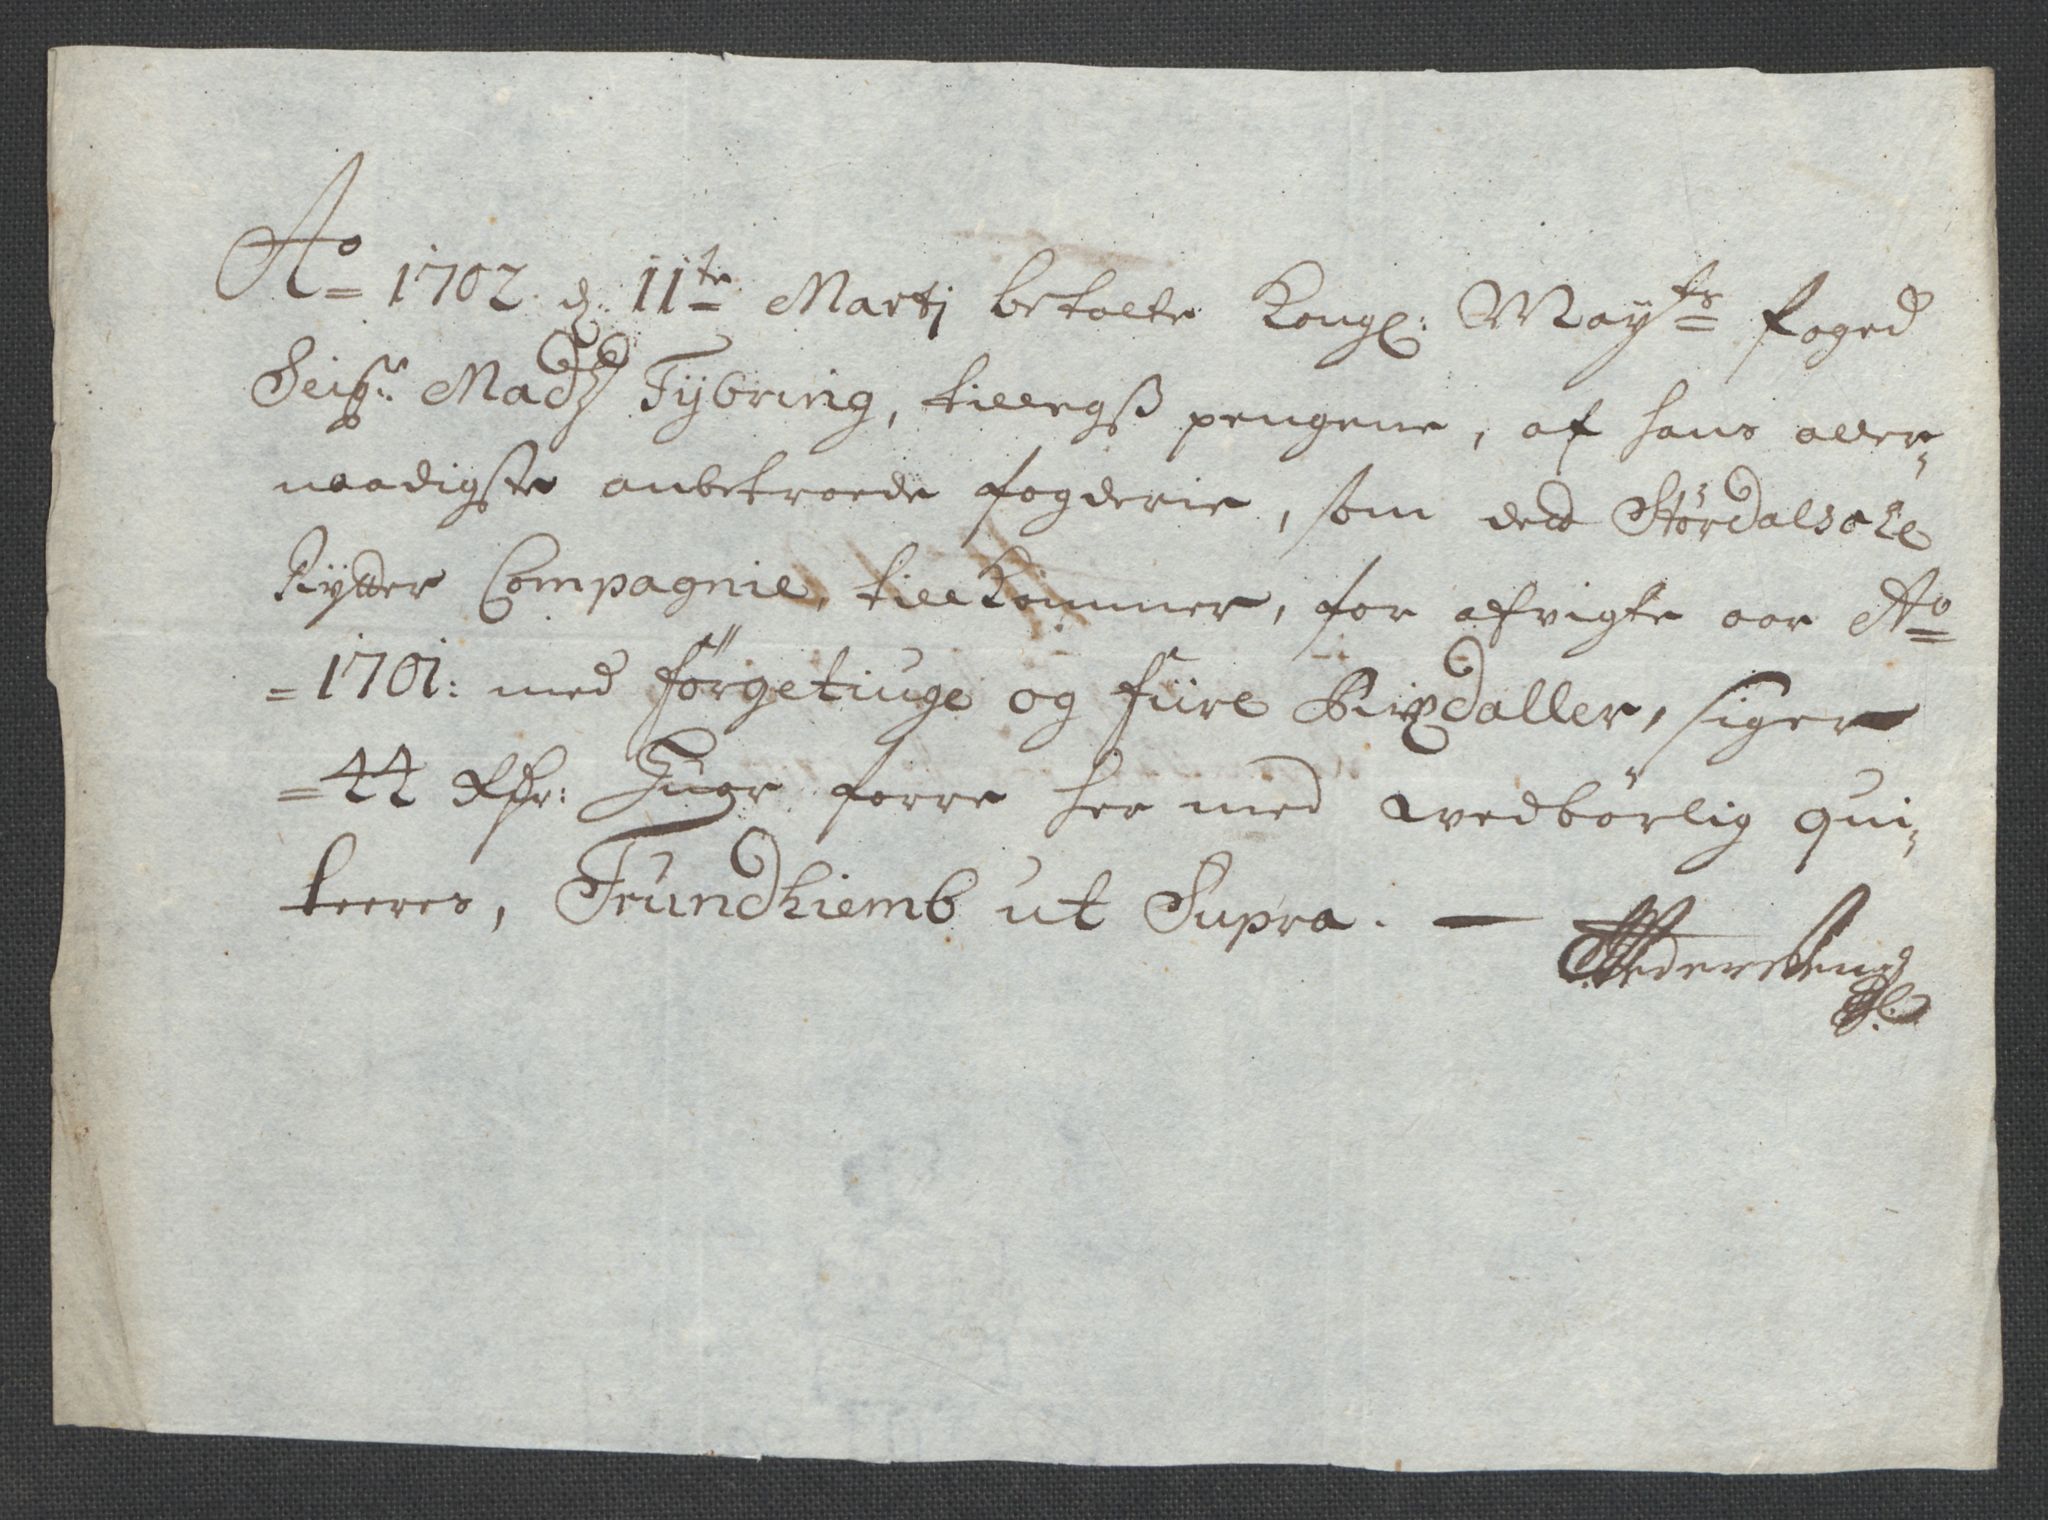 Ao 1702 d. 11te Martj betalte Kongl: Mayts foged
Seigr. Madz Tÿbring, tillegß pengene, af hans aller-
naadigste anbetroede fogderie, som det Stördalsche
Rÿtter Compagnie, tillkommer, for afvigte aar Ao
=1701: med förgetiuge og fiire Rixdaller, siger
=44 Rdr: Huor forre her med vedbörlig qui-
teeres, Trundhiemb ut Supra. —